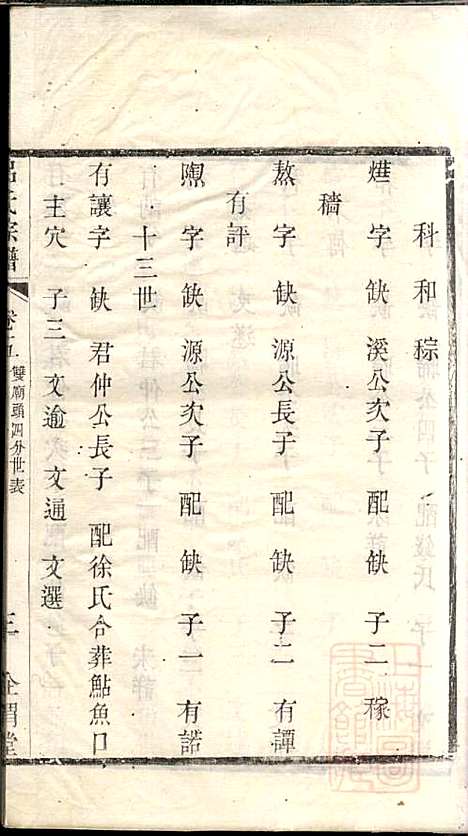 科 和 稌
燁 字缺 溪公次子 配缺 子二 稼
穡
熬 字缺 源公長子 配缺 子二 有譚
有評
字缺 源公次子 配缺 子一 有諾
十三世
有讓 字缺 君仲公長子 配徐氏合葬鮎魚口
主穴 子三 文逾 文通 文選
呂氏宗譜 卷十五 雙廟頭四分世表 三 全渭堂
上海圖書館藏